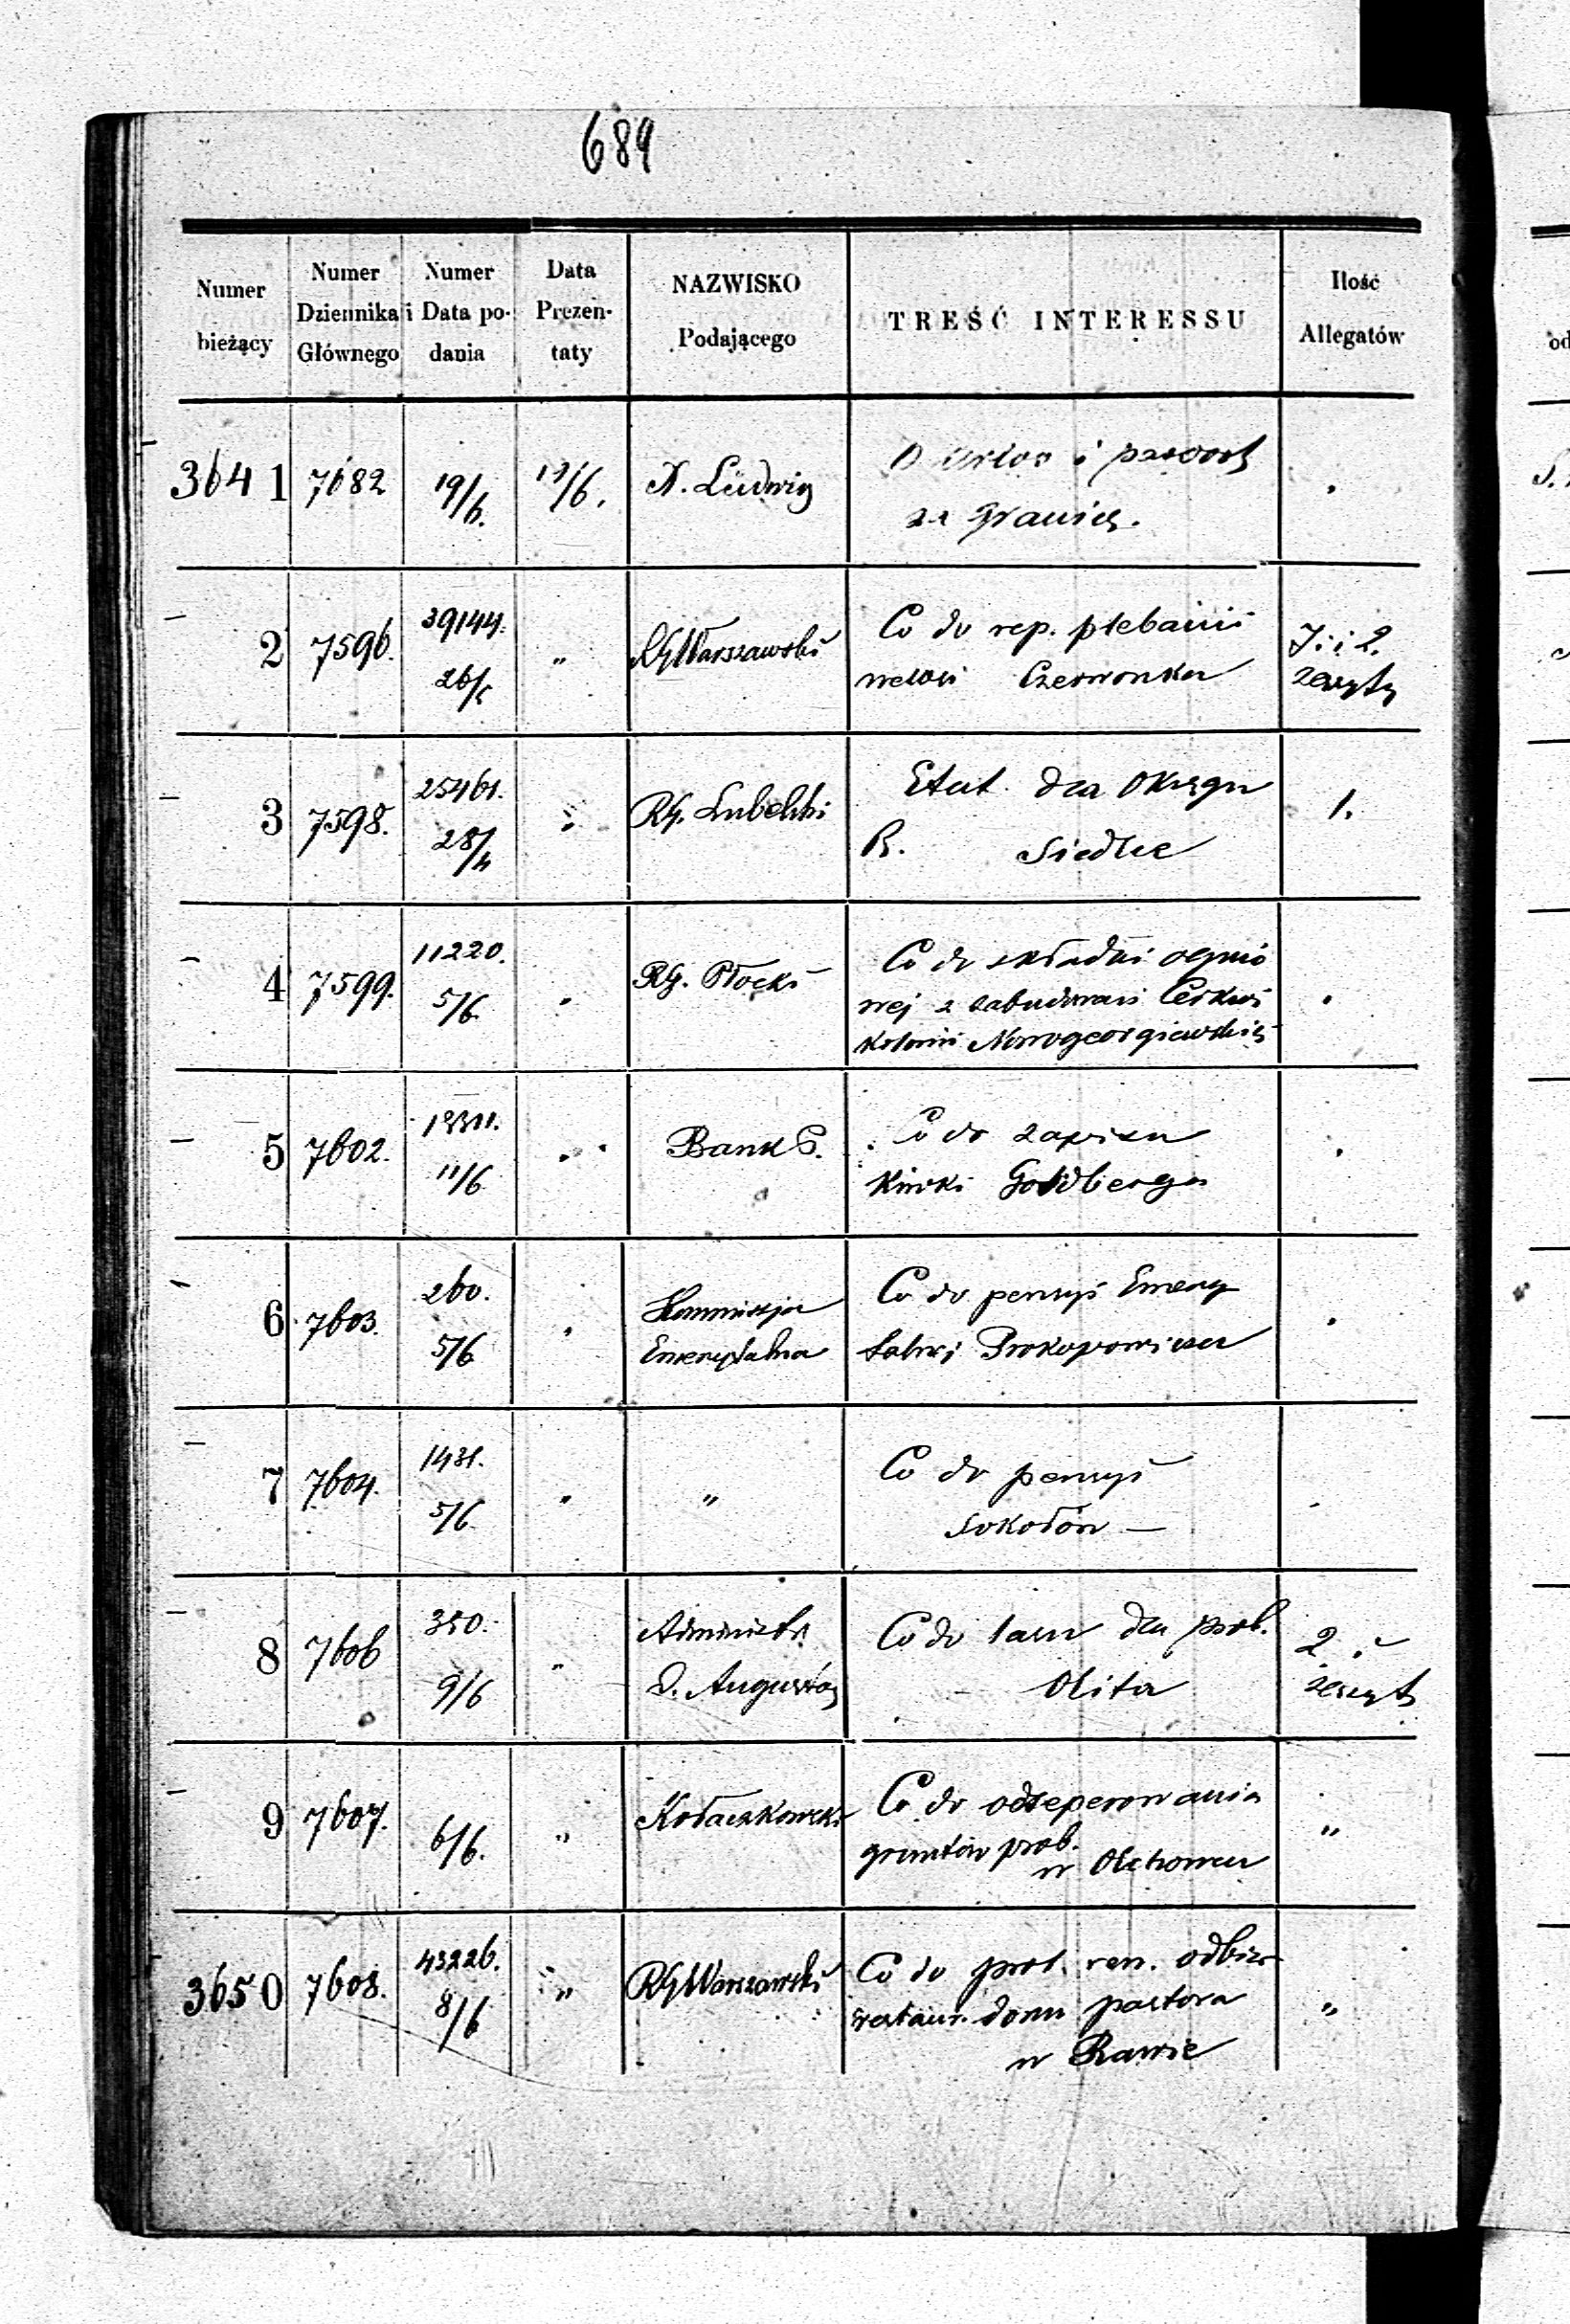 689
Numer bieżący
Numer Dziennika Głównego
Numer i Data podania
Data Prezentaty
NAZWISKO Podającego
TREŚĆ INTERESSU
Ilość Allegatów
3641 7682 19/6. 19/6. X. Ludwig O urlop i paszport
za granicę.
2 7596. 39144. 26/5 " RGWarszawski Co do rep. plebanii 7. i 2.
we wsi Czerwonka zeszyty
3 7598. 25461. 28/4 " RG. Lubelski Etat dla Okręgu 1.
B. Siedlce
4 7599. 11220. 5/6 " RG. Płocki Co do składki ognio
wej z zabudowań Cerkwi
kolonii Nowogeorgiewskiej
5 7602. 11/6 " Bank P. Co do zapisu
Kiwki Goldberga
6 7603. 260. 5/6 " Kommissja Co do pensyi Emery
Emerytalna talnej Prokopowicza
7 7604. 1431. 5/6 " " Co do pensyi
Sokołów —
8 7606 350. 9/6 " Administr. Co do lasu dla prob. 2
D. Augustow. Olita zeszyty
9 7607. 6/6. " Kołaczkowski Co do odseperowania "
gruntów prob.
w Olchowcu
3650 7608. 43226. 8/6 " RGWarszawski Co do prot. rew. odbior "
restaur. domu pastora
w Rawie